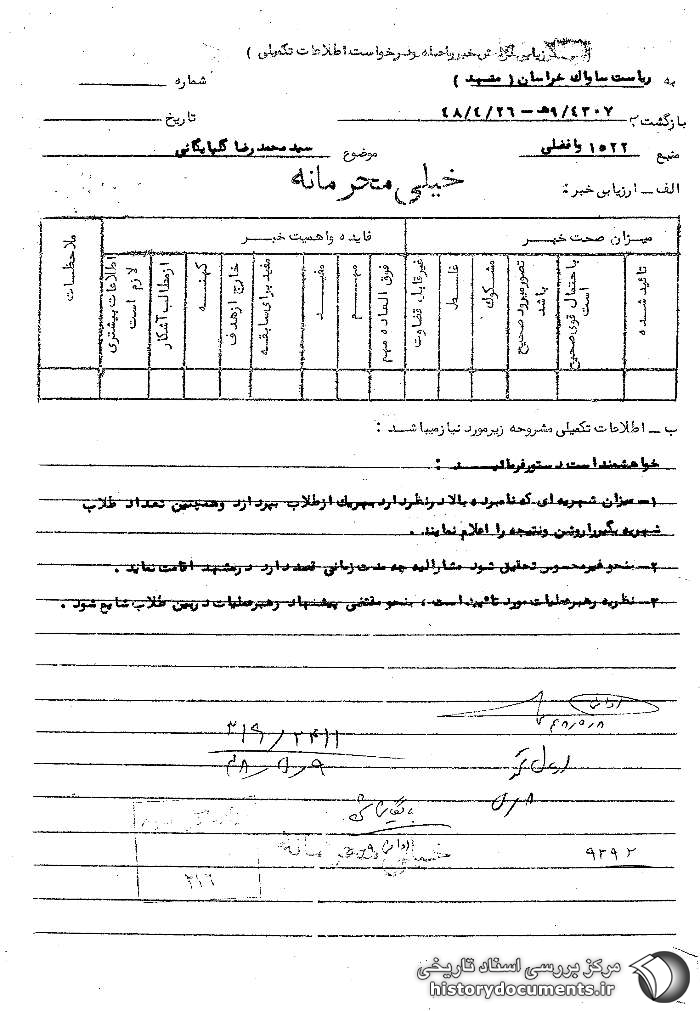 ارزیابی گزارش خبر واصله و درخواست اطلاعات تکمیلی )
به ریاست ساواک خراسان ( مشهد ) شماره
بازگشت به ۹/۴۳۰۷ ه‍ - ۴۸/۴/۲۶ تاریخ
منبع ۱۵۲۲ وافضلی موضوع سید محمد رضا گلپایگانی
خیلی محرمانه
الف - ارزیابی خبر :
میزان صحت خبر فایده و اهمیت خبر ملاحظات
تائید شده
با احتمال قوی صحیح است
تصور میرود صحیح باشد
مشکوک
غلط
غیرقابل قضاوت
فوق العاده مهم
مهم
مفید
مفید برای سابقه
خارج از هدف
کهنه
از مطالب آشکار
اطلاعات بیشتری لازم است
ب - اطلاعات تکمیلی مشروحه زیر مورد نیاز میباشد :
خواهشمند است دستور فرمائید :
۱- میزان شهریه ای که نامبرده بالا در نظر دارد بهریک از طلاب بپردازد وهمچنین تعداد طلاب
شهریه بگیر را روشن ونتیجه را اعلام نمایند .
۲- بنحو غیرمحسوس تحقیق شود مشارالیه چه مدت زمانی قصد دارد در مشهد اقامت نماید .
۳- نظریه رهبر عملیات مورد تائید است ، بنحو مقتضی پیشنهاد رهبر عملیات در بین طلاب شایع شود .
۴۸/۵/۸
۳۱۶/۲۴۱۱
۴۸/۵/۹
بایگانی
خیلی محرمانه
۹۲۹۲
۳۱۶
مرکز بررسی اسناد تاریخی
historydocuments.ir